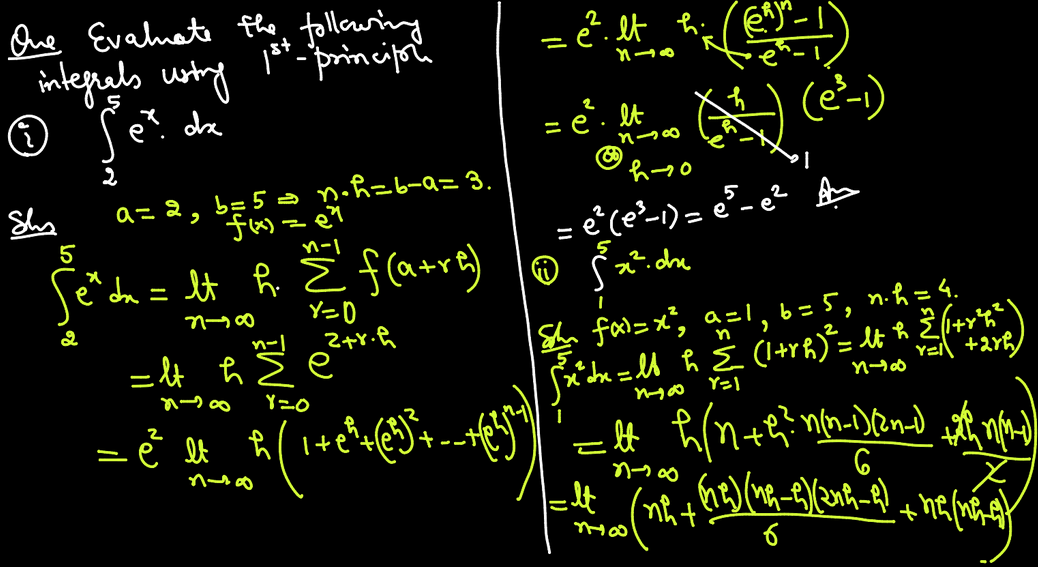 Que Evaluate the following
integrals using 1st-principle
i ∫₂⁵ eˣ. dx
Sln a=2, b=5 ⇒ n·h=b-a=3.
f(x)=eˣ
∫₂⁵ eˣ dx = lt_{n→∞} h. Σ_{r=0}^{n-1} f(a+rh)
= lt_{n→∞} h Σ_{r=0}^{n-1} e^{2+r·h}
= e² lt_{n→∞} h (1+e^h+(e^h)²+---+(e^h)^{n-1})
= e². lt_{n→∞} h. ((e^h)^n - 1 / e^h - 1)
= e². lt_{n→∞ or h→0} (h / e^h - 1) (e³-1)
1
= e²(e³-1) = e⁵ - e² An
ii ∫₁⁵ x². dx
Sln f(x)=x², a=1, b=5, n.h=4.
∫₁⁵ x² dx = lt_{n→∞} h Σ_{r=1}^{n} (1+rh)² = lt_{n→∞} h Σ_{r=1}^{n} (1+r²h²+2rh)
= lt_{n→∞} h (n + h². n(n-1)(2n-1) / 6 + 2h n(n-1) / 2)
= lt_{n→∞} (nh + (nh)(nh-h)(2nh-h) / 6 + nh(nh-h))